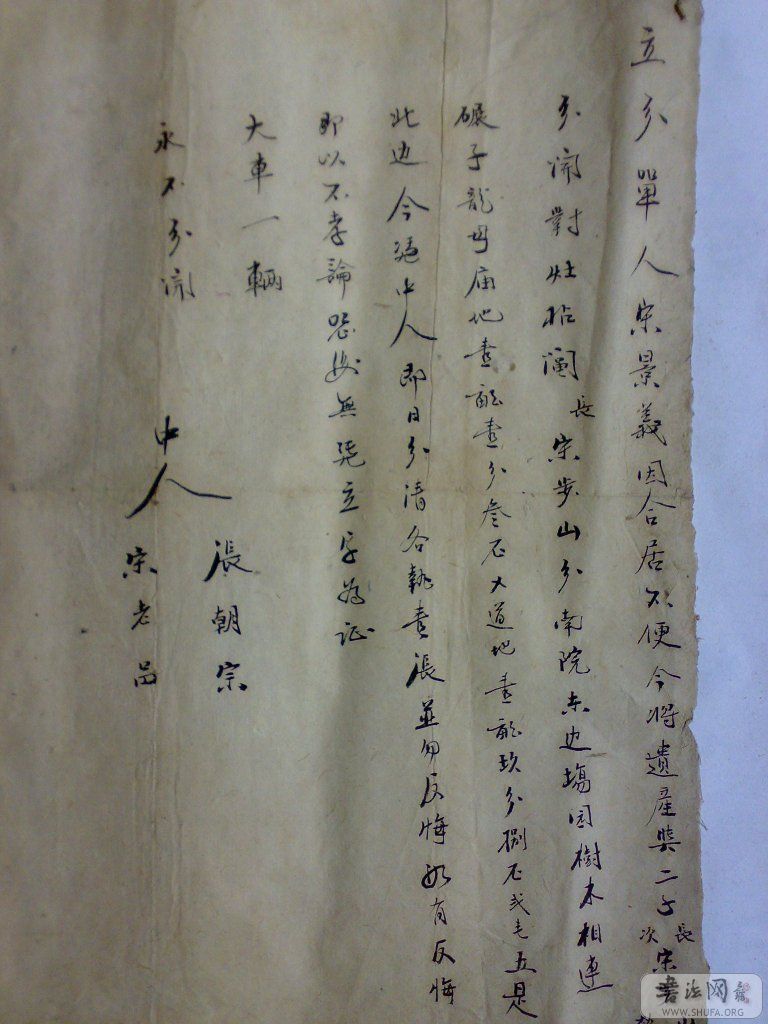 立分單人宋景義因合居不便今將遺產與二子長次宋
分開對灶拈鬮長宋步山分南院东边塲园樹木相連
碾子龍母庙地壹畝壹分叁厘大道地壹畝玖分捌厘弍毛五是
此边今凴中人即日分清各執壹張並勿反悔如有反悔
即以不孝論恐後無凴立字為证
大車一輛
永不分開
中人
張朝宗
宋老
書法网
WWW.SHUFA.ORG